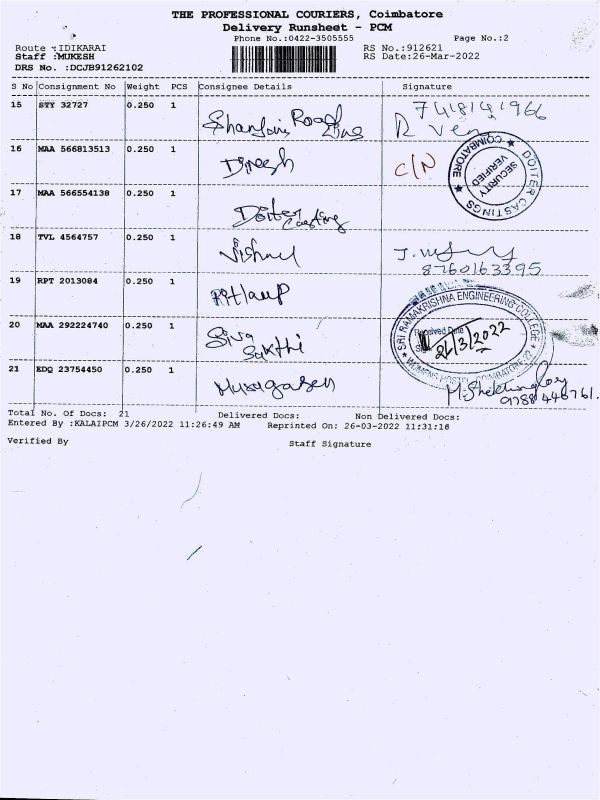 THE PROFESSIONAL COURIERS, Coimbatore
Delivery Runsheet - PCM
Phone No.:0422-3505555 Page No.:2
Route :IDIKARAI RS No.:912621
Staff :MUKESH RS Date:26-Mar-2022
DRS No. :DCJB91262102
S No Consignment No Weight PCS Consignee Details Signature
15 STY 32727 0.250 1
16 MAA 566813513 0.250 1 Dinesh C/N
COIMBATORE SECURITY VERIFIED DOITER CASTINGS
17 MAA 566554138 0.250 1 Doiter Casting
18 TVL 4564757 0.250 1 Vishnu
8760163395
19 RPT 2013084 0.250 1
SRI RAMAKRISHNA ENGINEERING COLLEGE
WOMENS HOSTEL COIMBATORE 22
20 MAA 292224740 0.250 1 Siva Sakthi
21 EDQ 23754450 0.250 1 Murugasen
Total No. Of Docs: 21 Delivered Docs: Non Delivered Docs:
Entered By :KALAIPCM 3/26/2022 11:26:49 AM Reprinted On: 26-03-2022 11:31:18
Verified By Staff Signature